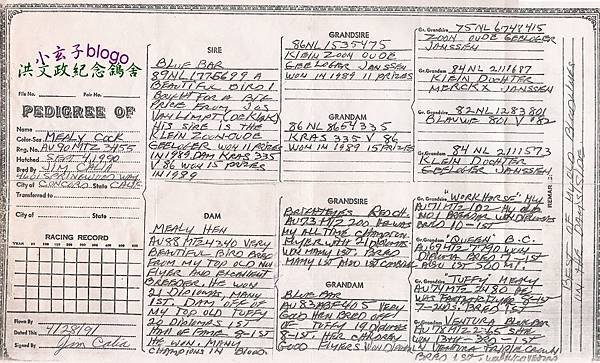 小玄子blogo
洪文政紀念鴿舍
File No.
Pair No.
PEDIGREE OF
Name
Color-Sex MEALY COCK
Reg. No. AU 90 MTZ 3455
Hatched SEPT 4 1990
Bred By JIM CALIA
4601 SPRINGWOOD WAY
City of CONCORD State CALIF
Transferred to
City of State
RACING RECORD
YEAR
Flown By
Dated This 4/28/91
Signed By Jim Calia
SIRE
BLUE BAR
89NL 1775699 A
BEAUTIFUL BIRD!
BOUGHT FOR A BIG
PRICE FROM JOS
VAN LIMPT (DE KLAK)
HIS SIRE IS THE
KLEIN ZOON OUDE
GEELOGER WON 11 PRIZES
IN 1989. DAM KRAS 335
V 86 WON 15 PRIZES
IN 1989
DAM
MEALY HEN
AU 88 MTZ 4340 VERY
BEAUTIFUL BIRD BRED
FROM MY TOP OLD NO1
FLYER AND EXCELLENT
BREEDER. HE WON
21 DIPLOMAS, MANY
1ST. DAM OFF OF
MY TOP OLD TUFFY
20 DIPLOMAS 1ST
HALL OF FAME 8-1ST
HE WON. MANY
CHAMPIONS IN BLOOD.
GRANDSIRE
86NL 1535475
KLEIN ZOON OUDE
GEELOGER JANSSEN
WON IN 1989 11 PRIZES
GRANDAM
86 NL 8654335
KRAS 335 V 86
WON IN 1989 15 PRIZES
GRANDSIRE
AU 73 MTZ 200 HE WAS
MY ALL TIME CHAMPION
FLYER WITH 21 DIPLOMAS
WON MANY 1ST. BRED
MANY 1ST ALSO
GRANDAM
BLUE BAR
AU 83 405 VERY
GOOD HEN BRED OFF
OF TUFFY 19 DIPLOMAS
8-1ST. HER CHILDREN
GOOD FLYERS WON
Gr. Grandsire 75NL 6748415
ZOON OUDE GEELOGER
JANSSEN
Gr. Grandam 84NL 2111687
KLEIN DOCHTER
MERCKX JANSSEN
Gr. Grandsire 82NL 1283801
BLAUWE 801 V 82
Gr. Grandam 84 NL 2111573
KLEIN DOCHTER
GEELOGER JANSSEN
Gr. Grandsire "WORK HORSE" MY
AU 71 MTZ 102 MY OLD
NO1 BREEDER WON DIPLOMAS
BRED 10-1ST
Gr. Grandam "QUEEN" B.C.
DIPLOMA BRED 7-1ST
ALSO 1ST 500 MI.
Gr. Grandsire TUFFY MEALY
AU 74 MTZ 2480 HE
7-2ND. BRED 1ST
Gr. Grandam VENTURA BLUE BAR
WON 13TH 3RD-1ST
BRED 1ST
REMARKS
BEST OF HVOLO BLOODLINES
IN THE DAMS SIDE